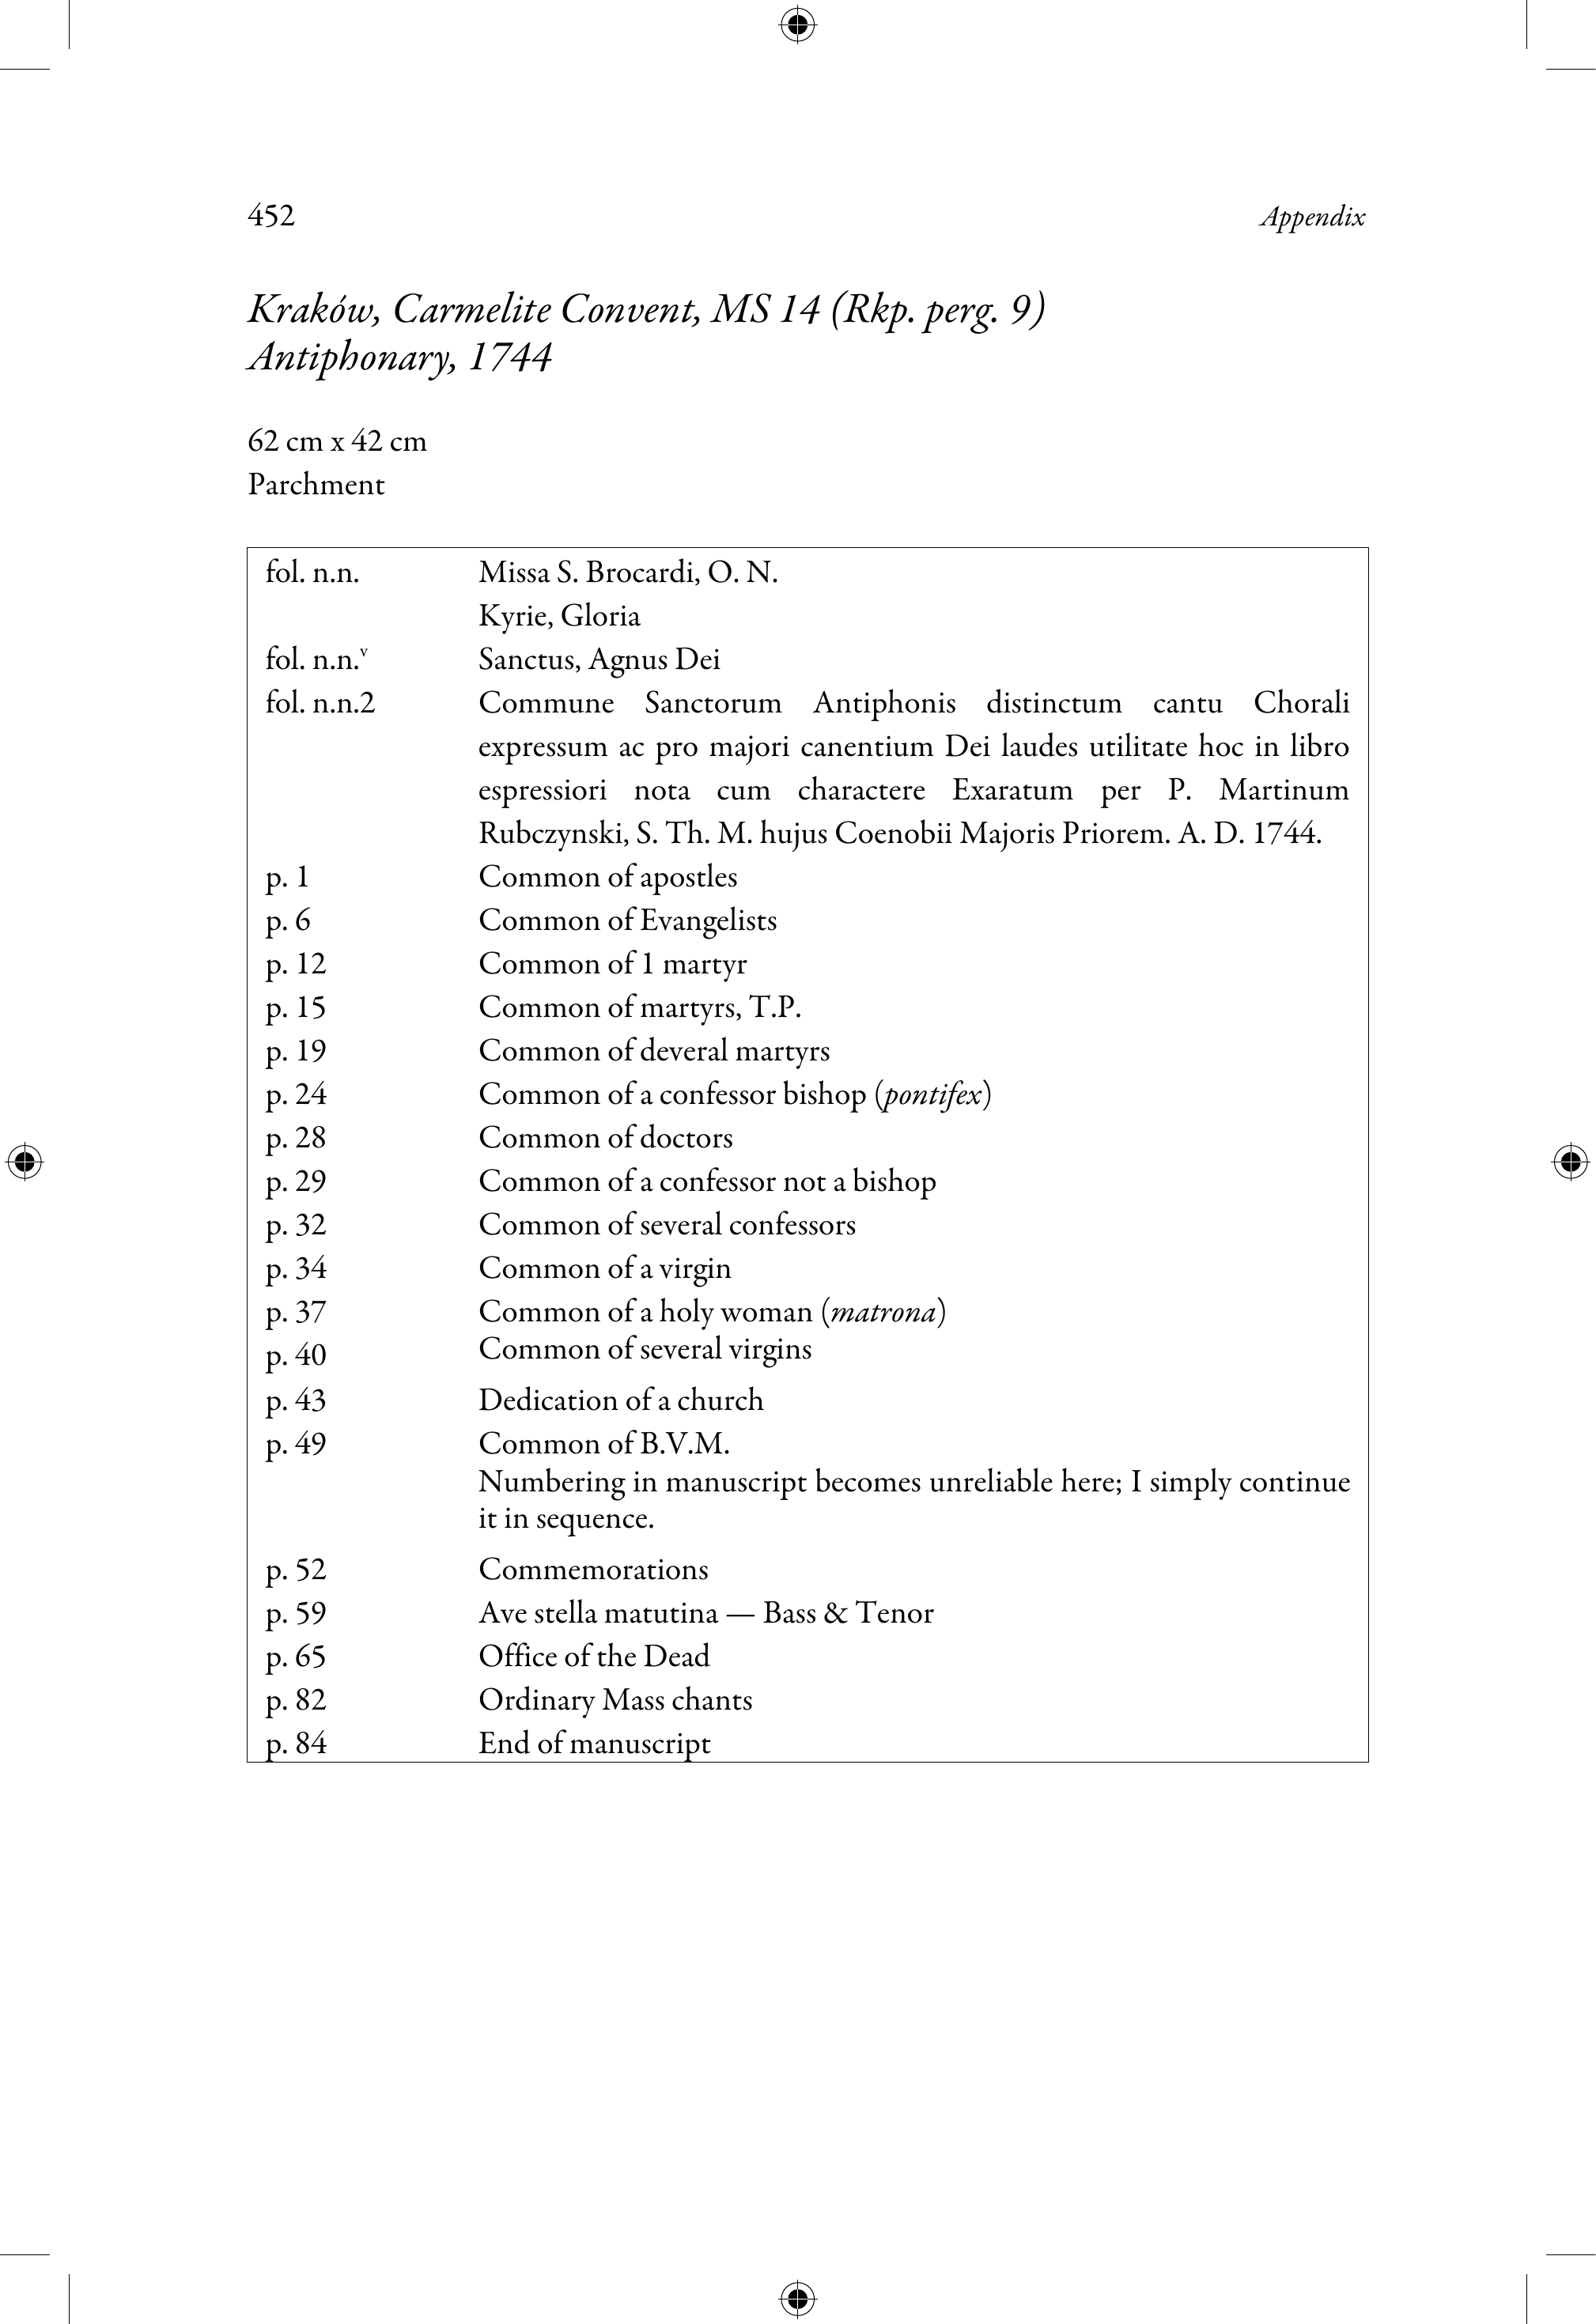 452 Appendix
Kraków, Carmelite Convent, MS 14 (Rkp. perg. 9)
Antiphonary, 1744
62 cm x 42 cm
Parchment
fol. n.n. Missa S. Brocardi, O. N.
Kyrie, Gloria
fol. n.n.v Sanctus, Agnus Dei
fol. n.n.2 Commune Sanctorum Antiphonis distinctum cantu Chorali
expressum ac pro majori canentium Dei laudes utilitate hoc in libro
espressiori nota cum charactere Exaratum per P. Martinum
Rubczynski, S. Th. M. hujus Coenobii Majoris Priorem. A. D. 1744.
p. 1 Common of apostles
p. 6 Common of Evangelists
p. 12 Common of 1 martyr
p. 15 Common of martyrs, T.P.
p. 19 Common of deveral martyrs
p. 24 Common of a confessor bishop (pontifex)
p. 28 Common of doctors
p. 29 Common of a confessor not a bishop
p. 32 Common of several confessors
p. 34 Common of a virgin
p. 37 Common of a holy woman (matrona)
p. 40 Common of several virgins
p. 43 Dedication of a church
p. 49 Common of B.V.M.
Numbering in manuscript becomes unreliable here; I simply continue
it in sequence.
p. 52 Commemorations
p. 59 Ave stella matutina — Bass & Tenor
p. 65 Office of the Dead
p. 82 Ordinary Mass chants
p. 84 End of manuscript